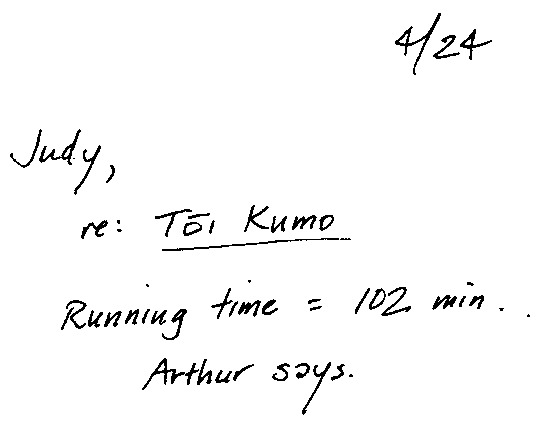 4/24
Judy,
re: Tōi Kumo
Running time = 102 min. .
Arthur says.